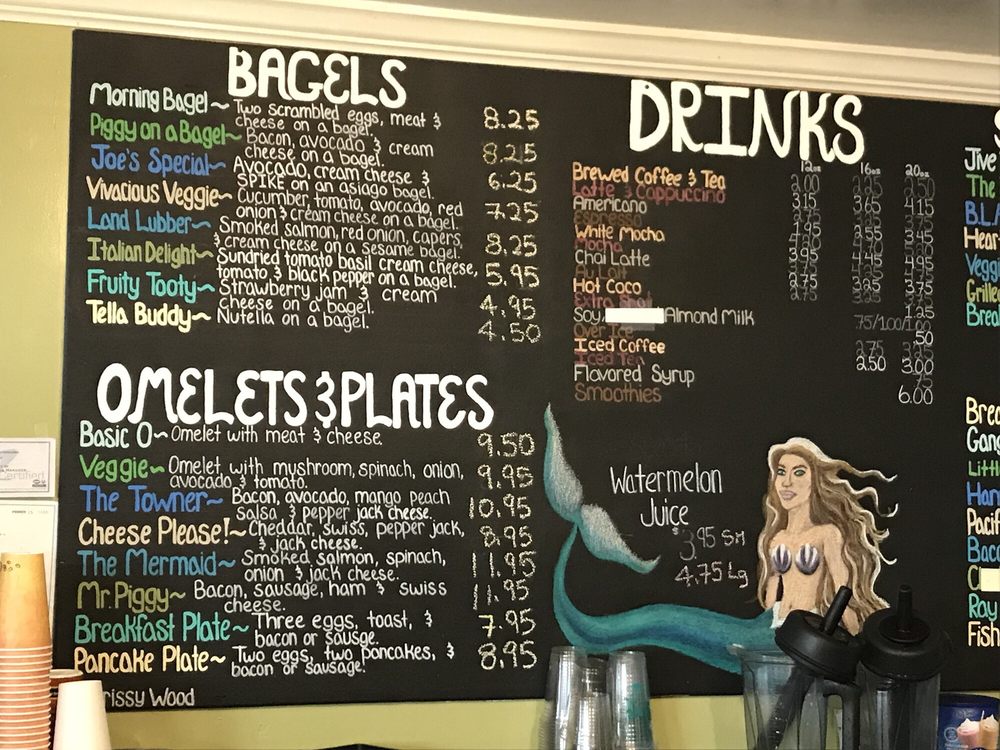 BAGELS
Morning Bagel~ Two scrambled eggs, meat & 8.25
cheese on a bagel.
Piggy on a Bagel~ Bacon, avocado & cream 8.25
cheese on a bagel.
Joe's Special~ Avocado, cream cheese & 6.25
SPIKE on an asiago bagel.
Vivacious Veggie~ Cucumber, tomato, avocado, red 7.25
onion & cream cheese on a bagel.
Land Lubber~ Smoked salmon, red onion, capers, 8.25
& cream cheese on a sesame bagel.
Italian Delight~ Sundried tomato basil cream cheese, 5.95
tomato & black pepper on a bagel.
Fruity Tooty~ Strawberry jam & cream 4.95
cheese on a bagel.
Tella Buddy~ Nutella on a bagel. 4.50
OMELETS & PLATES
Basic O~ Omelet with meat & cheese. 9.50
Veggie~ Omelet with mushroom, spinach, onion, 9.95
avocado & tomato.
The Towner~ Bacon, avocado, mango peach 10.95
salsa & pepper jack cheese.
Cheese Please!~ Cheddar, swiss, pepper jack, 8.95
& jack cheese.
The Mermaid~ Smoked salmon, spinach, 11.95
onion & jack cheese.
Mr. Piggy~ Bacon, sausage, ham & swiss 11.95
cheese.
Breakfast Plate~ Three eggs, toast, & 7.95
bacon or sausge.
Pancake Plate~ Two eggs, two pancakes, & 8.95
bacon or sausage!
rissy Wood
DRINKS
12oz 16oz 20oz
Brewed Coffee & Tea 2.00
Latte & Cappuccino 3.15 3.65 4.15
Americano
Espresso
White Mocha
Mocha 3.95 4.45 4.95
Chai Latte
Au Lait
Hot Coco
Extra Shot 1.25
Soy, Almond Milk .75/1.00/1.00
Over Ice .50
Iced Coffee
Iced Tea 2.50 3.00
Flavored Syrup
Smoothies 6.00
Watermelon
Juice
$3.95 Sm
4.75 Lg
Jive
The
B.L.
Hear
Veggi
Grille
Brea
Brea
Gang
Littl
Ham
Pacif
Baco
C
Ray
Fish